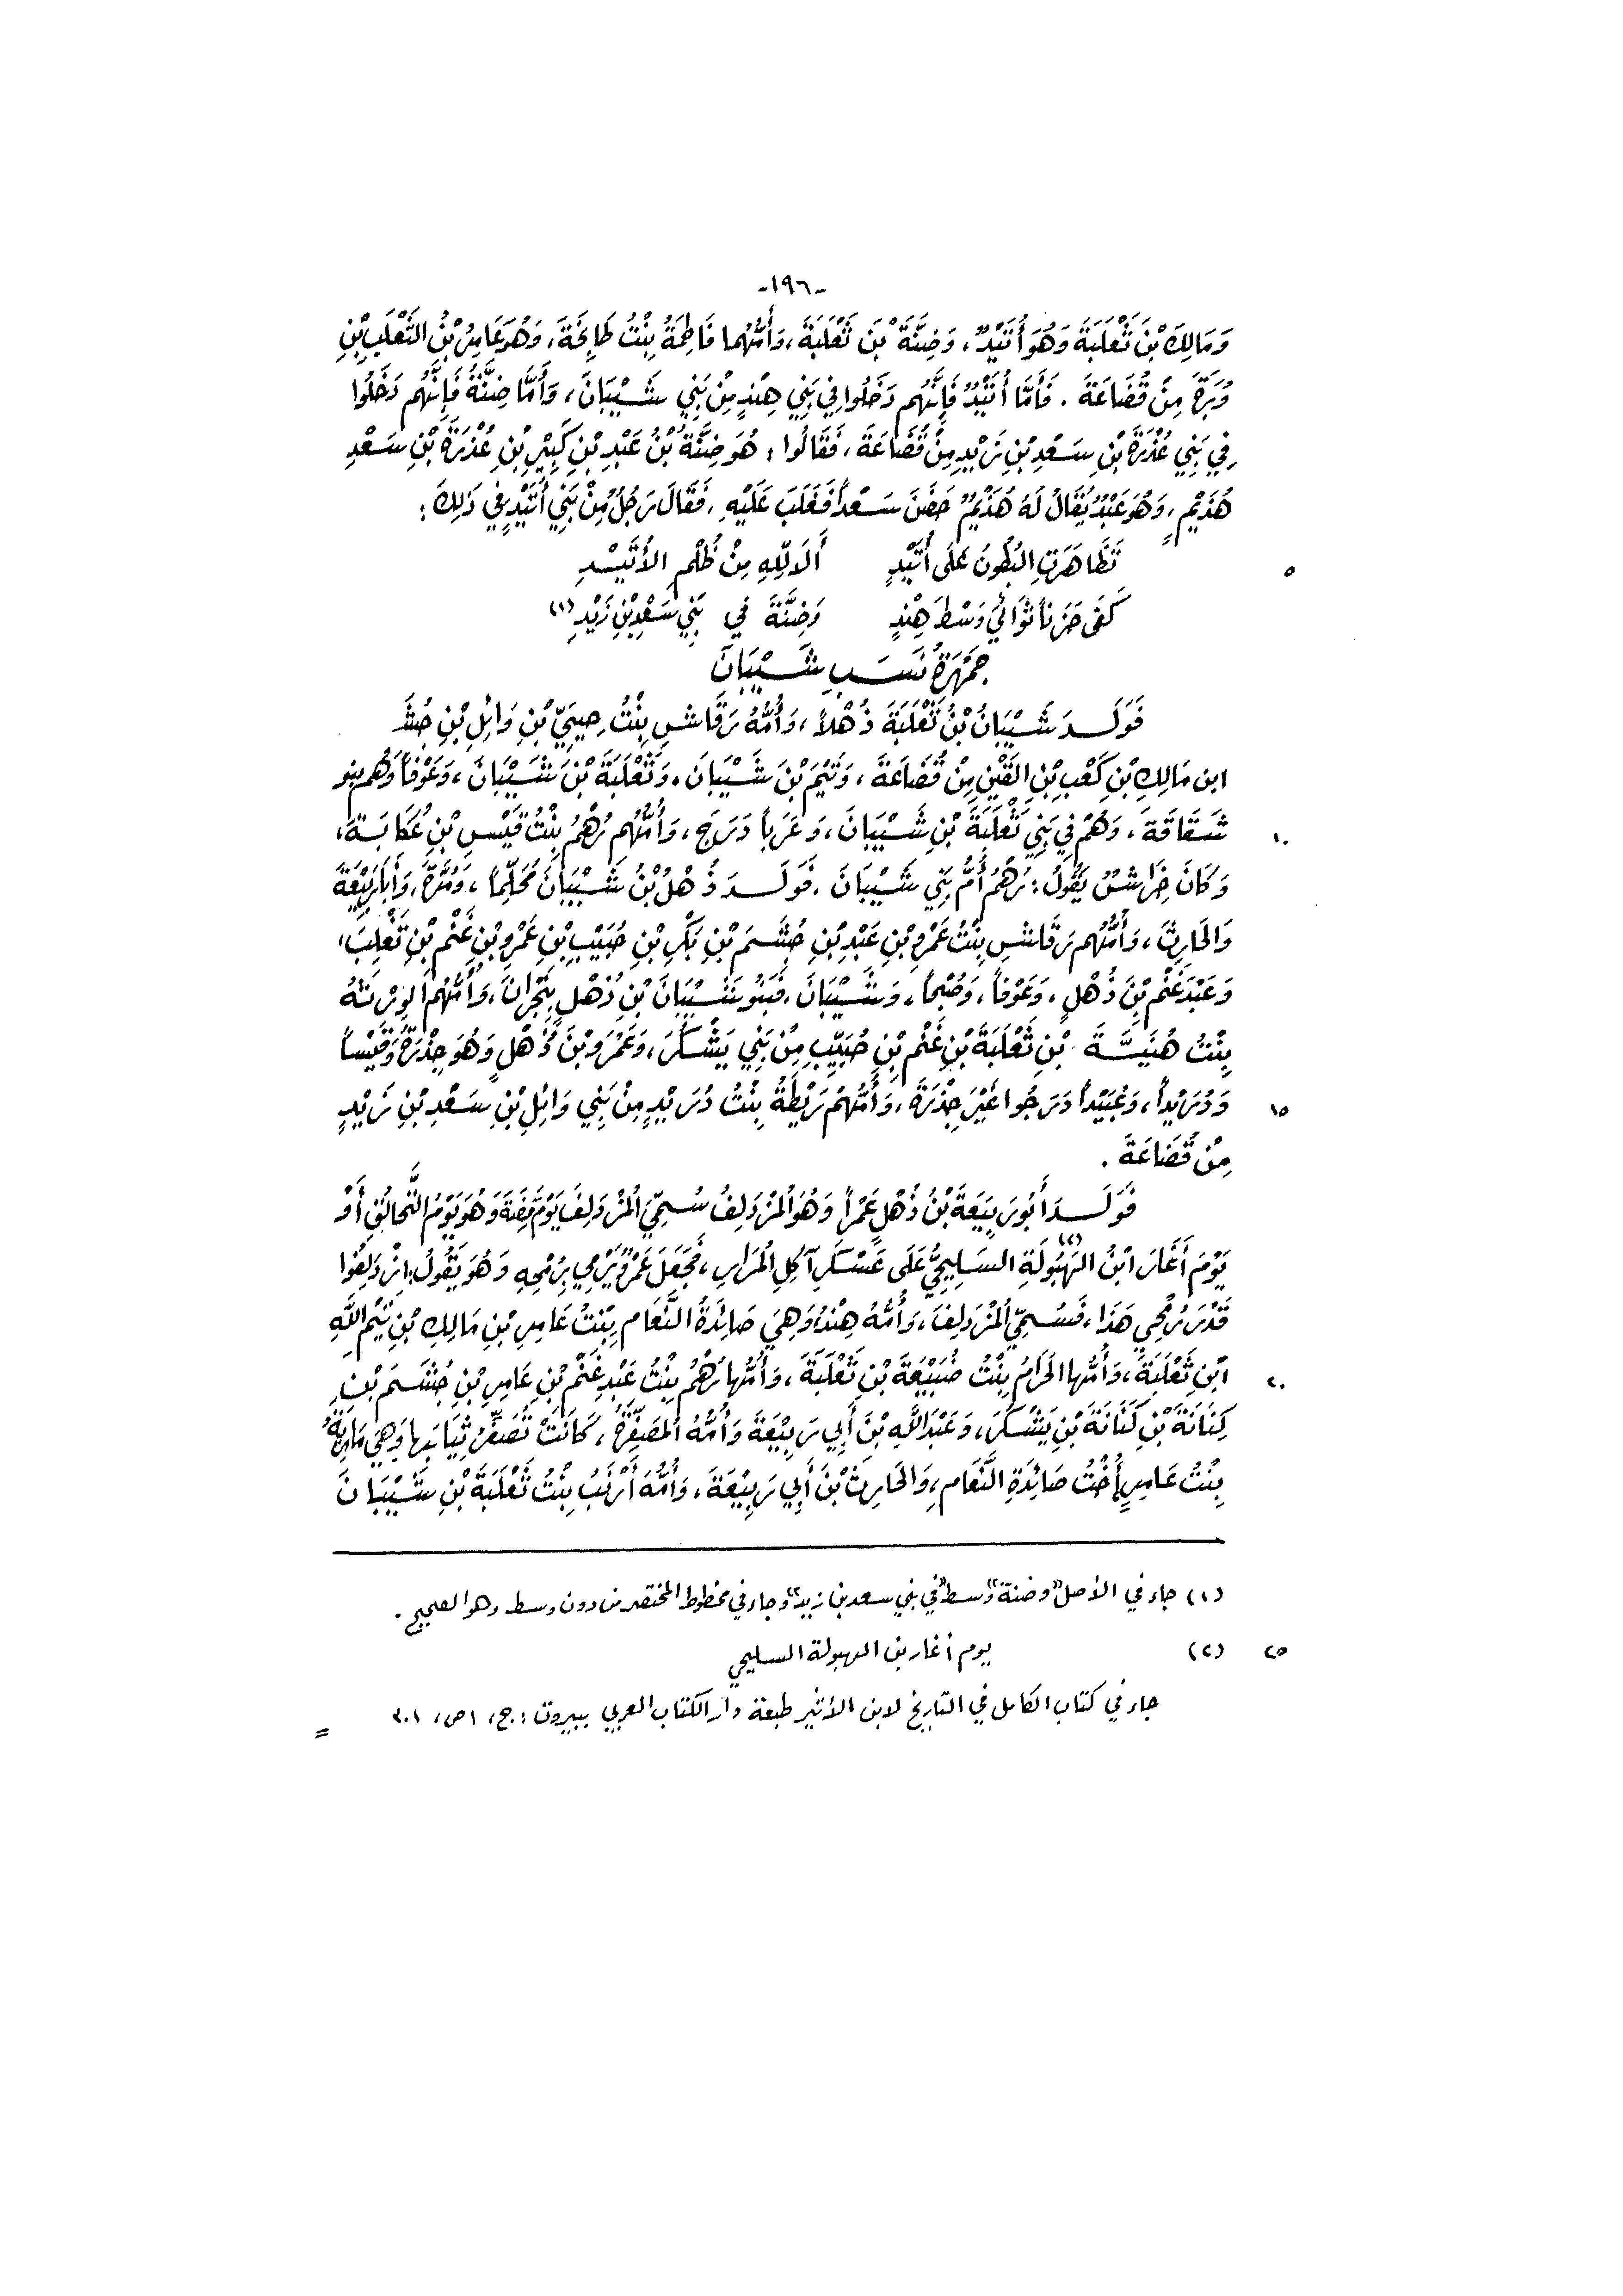 -١٩٦-
وَمَالِكَ بْنَ ثَعْلَبَةَ وَهُوَ أُتَيْدٌ، وَضِنَّةَ بْنَ ثَعْلَبَةَ، وَأُمُّهُما فَاطِمَةُ بِنْتُ طَابِخَةَ، وَهُوَ عَامِرُ بْنُ الثَّعْلَبِ بْنِ
وَبَرَةَ مِنْ قُضَاعَةَ. فَأَمَّا أُتَيْدٌ فَإِنَّهُم دَخَلُوا فِي بَنِي هِنْدٍ مِنْ بَنِي شَيْبَانَ، وَأَمَّا ضِنَّةُ فَإِنَّهُم دَخَلُوا
فِي بَنِي عُذْرَةَ بْنِ سَعْدِ بْنِ زَيْدٍ مِنْ قُضَاعَةَ، فَقَالُوا: هُوَ ضِنَّةُ بْنُ عَبْدِ بْنِ كَبِيْرِ بْنِ عُذْرَةَ بْنِ سَعْدِ
هُذَيْمٍ، وَهُوَ عَبْدٌ يُقَالُ لَهُ هُذَيْمٌ حَضَنَ سَعْداً فَغَلَبَ عَلَيْهِ، فَقَالَ رَجُلٌ مِنْ بَنِي أُتَيْدٍ فِي ذَلِكَ:
تَظَاهَرَتِ البُطُونُ عَلَى أُتَيْدٍ أَلَا لِلّهِ مِنْ ظُلْمِ الأُتَيْدِ
٥
كَفَى حَزَناً ثَوَائِي وَسْطَ هِنْدٍ وَضِنَّةَ فِي بَنِي سَعْدِ بْنِ زَيْدِ (١)
جَمْهَرَةُ نَسَبِ شَيْبَانَ
فَوَلَدَ شَيْبَانُ بْنُ ثَعْلَبَةَ ذُهْلاً، وَأُمُّهُ رَقَاشِ بِنْتُ حِيَيِّ بْنِ وَائِلِ بْنِ جُشَ
ابن مَالِكِ بْنِ كَعْبِ بْنِ القَيْنِ مِنْ قُضَاعَةَ، وَتَيْمَ بْنَ شَيْبَانَ. وَثَعْلَبَةَ بْنَ شَيْبَانَ، وَعَوْفاً وَهُم بنو
شَقَاقَةَ، وَهُمْ فِي بَنِي ثَعْلَبَةَ بْنِ شَيْبَانَ، وَغَرَباً دَرَجَ، وَأُمُّهُم رُهْمُ بِنْتُ قَيْسِ بْنِ عُكَابَةَ،
١٠
وَكَانَ خِرَاشٌ يَقُولُ: رُهْمُ أُمُّ بَنِي شَيْبَانَ. فَوَلَدَ ذُهْلُ بْنُ شَيْبَانَ مُحَلِّماً، وَمُرَّةَ، وَأَبَا رَبِيْعَةَ
وَالحَارِثَ، وَأُمُّهُم رَقَاشِ بِنْتُ عَمْرِو بْنِ عَبْدِ بْنِ جُشَمَ بْنِ بَكْرِ بْنِ حُبَيْبِ بْنِ عَمْرِو بْنِ غَنْمِ بْنِ تَغْلِبَ،
وَعَبْدَ غَنْمِ بْنَ ذُهْلٍ، وَعَوْفاً، وَصُبْحاً، وَشَيْبَانَ، فَبَنُو شَيْبَانَ بْنِ ذُهْلٍ بِنَجْرَانَ، وَأُمُّهُم الوِرْثَةُ
بِنْتُ هُنَيَّةَ بْنِ ثَعْلَبَةَ بْنِ غَنْمِ بْنِ حُبَيِّبٍ مِنْ بَنِي يَشْكُرَ، وَعَمْرَو بْنَ ذُهْلٍ وَهُوَ جِذْرَةُ وَقَيْساً
وَدُرَيْداً، وَعُبَيْداً دَرَجُوا غَيْرَ جِذْرَةَ، وَأُمُّهُمْ رَيْطَةُ بِنْتُ دُرَيْدٍ مِنْ بَنِي وَائِلِ بْنِ سَعْدِ بْنِ زَيْدٍ
١٥
مِنْ قُضَاعَةَ.
فَوَلَدَ أَبُو رَبِيَعَةَ بْنُ ذُهْلٍ عَمْراً وَهُوَ المُزْدَلِفُ سُمِّيَ المُزْدَلِفَ يَوْمَ قِضَةَ وَهُوَ يَوْمُ التَّحَالُقِ أَوْ
يَوْمَ أَغَارَ ابْنُ الهَبُولَةِ (٢) السَلِيحِيُّ عَلَى عَسْكَرِ آكِلِ المُرَارِ، فَجَعَلَ عَمْرٌو يَرْمِي بِرُمْحِهِ وَهُوَ يَقُولُ: ازْدَلِفُوا
قَدْرَ رُمْحِي هَذَا، فَسُمِّيَ المُزْدَلِفَ، وَأُمُّهُ هِنْدُ وَهِيَ صَائِدَةُ النَّعَامِ بِنْتُ عَامِرِ بْنِ مَالِكِ بْنِ تَيْمِ اللَّهِ
ابْنِ ثَعْلَبَةَ، وَأُمُّها الحَرَامُ بِنْتُ ضُبَيْعَةَ بْنِ ثَعْلَبَةَ، وَأُمُّها رُهْمُ بِنْتُ عَبْدِ غَنْمِ بْنِ عَامِرِ بْنِ جُشَمَ بْنِ
٢٠
كِنَانَةَ بْنِ كَنَانَةَ بْنِ يَشْكُرَ، وَعَبْدَ اللَّهِ بْنَ أَبِي رَبِيْعَةَ وَأُمُّهُ المُصَفِّرَةُ، كَانَتْ تُصَفِّرُ ثِيَابَها وَهِيَ مَارِيَةُ
بِنْتُ عَامِرٍ أُخْتُ صَائِدَةِ النَّعَامِ، وَالحَارِثَ بْنَ أَبِي رَبِيْعَةَ، وَأُمُّهُ أَرْنَبُ بِنْتُ ثَعْلَبَةَ بْنِ شَيْبَانَ
(١) جاء في الأصل "وضنة" وسط "في بني سعد بن زيد" وجاء في مخطوط المختصر من دون وسط وهو الصحيح.
(٢) يوم أغار بن الهبولة السليحي
٢٥
جاء في كتاب الكامل في التاريخ لابن الأثير طبعة دار الكتاب العربي ببيروت: ج، ١ ص، ٣٠١
=